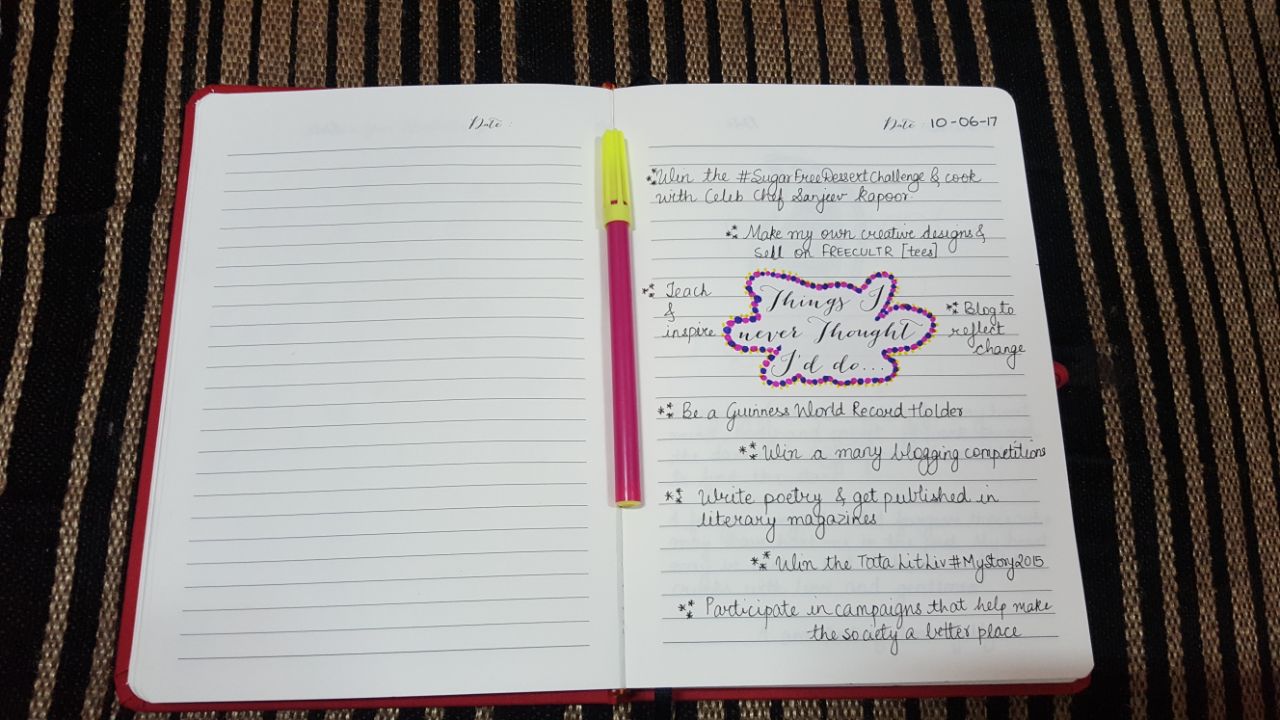 Date :
Date : 10-06-17
Win the #SugarFreeDessertChallenge & cook
with Celeb Chef Sanjeev Kapoor.
Make my own creative designs &
sell on FREECULTR [tees]
Teach
&
inspire
Things I
never Thought
I'd do...
Blog to
reflect
change
Be a Guinness World Record Holder
Win a many blogging competitions
Write poetry & get published in
literary magazines
Win the Tata LitLiv #MyStory2015
Participate in campaigns that help make
the society a better place